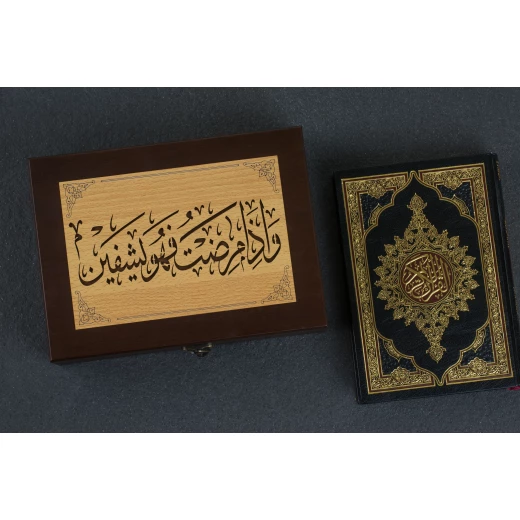 وَإِذَا مَرِضْتُ فَهُوَ يَشْفِينِ
القرآن الكريم